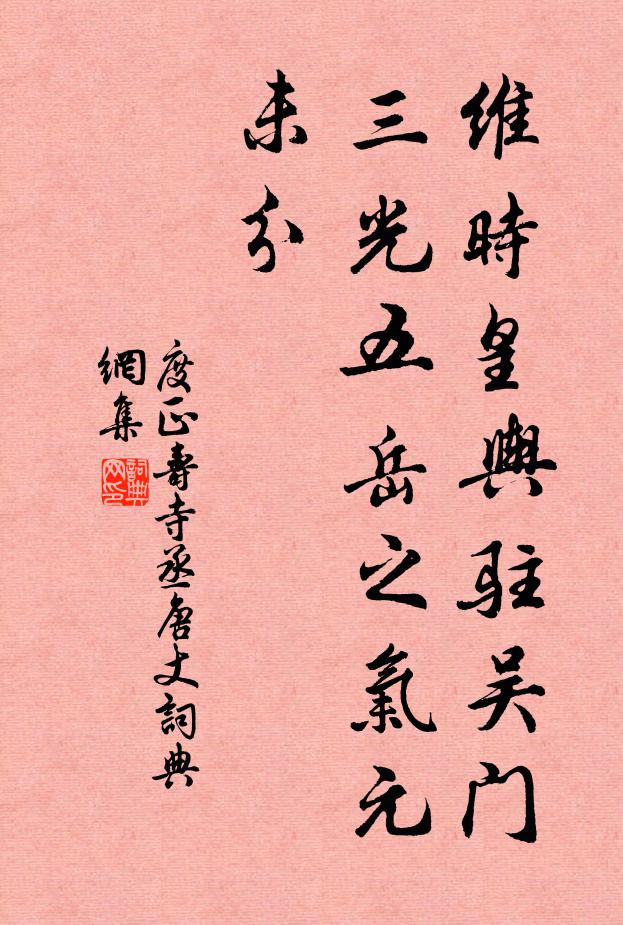 維時皇輿駐吴门
三光五岳之氣元
未分
度正壽寺丞唐丈詞典
網集
詞典
网印